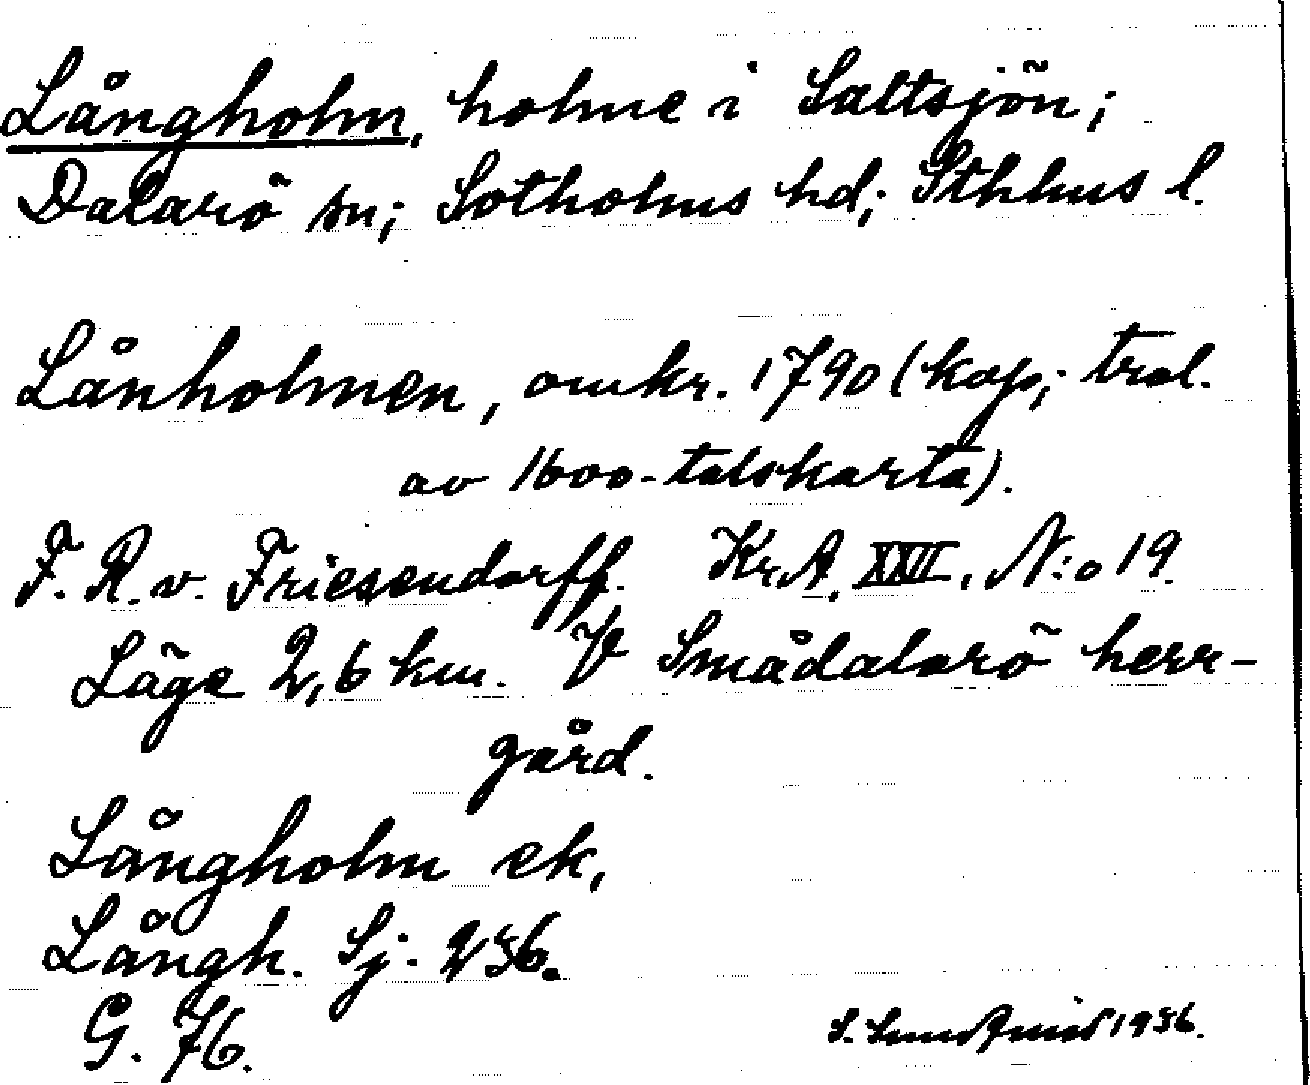 Långholm, holme i Saltsjön;
Dalarö sn; Sotholms hd; Sthlms l.
Långholmen, omkr. 1790 (kop; trol.
av 1600-talskarta).
F. R. v. Friesendorff. Kr.A. XXVI, N:o 19.
Läge 2,6 km. V Smådalarö herr-
gård.
Långholm ek,
Långh. Sj. 236.
G. 76.
S. 1936.